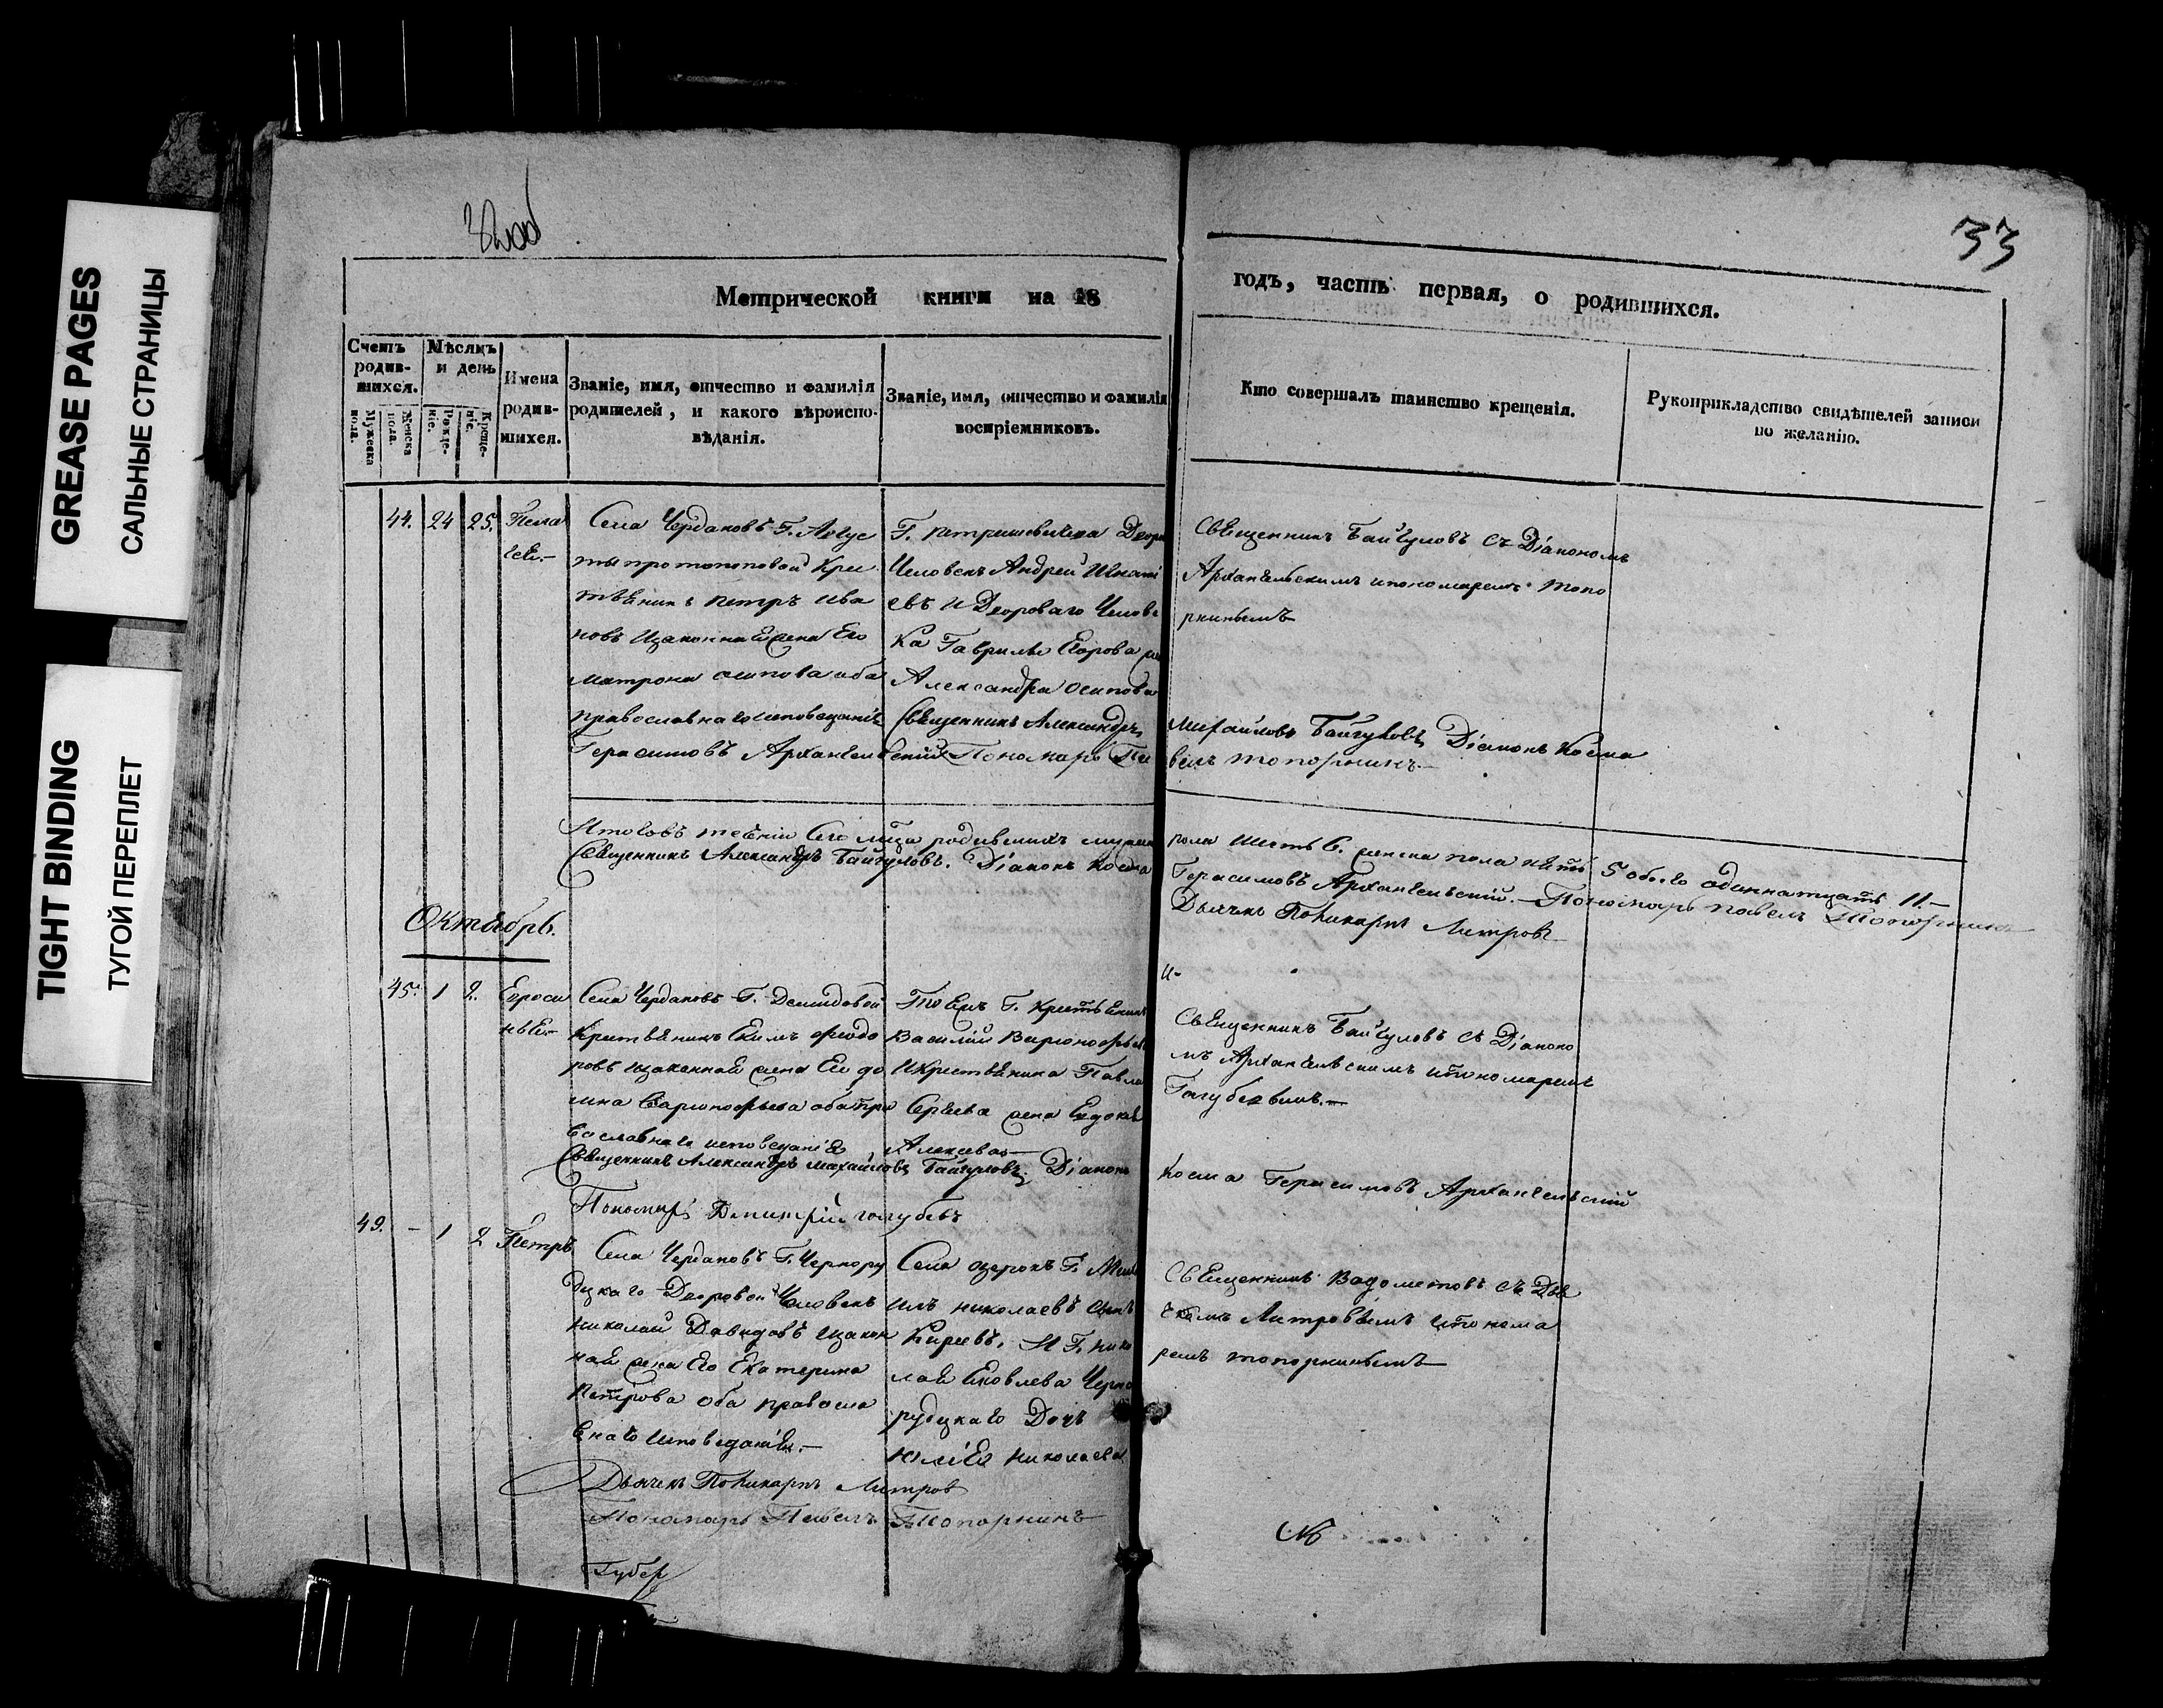 GREASE PAGES
САЛЬНЫЕ СТРАНИЦЫ
TIGHT BINDING
ТУГОЙ ПЕРЕПЛЕТ
32об
33
Метрической книги на 18
годъ, часть первая, о родившихся.
Счетъ родив-шихся.
Мужеска пола.
Женска пола.
Мѣсяцъ и день
Рожде-нія.
Креще-нія.
Имена родив-шихся.
Званіе, имя, отчество и фамилія
родителей, и какого вѣроиспо-
вѣданія.
Званіе, имя, отчество и фамилія
воспріемниковъ.
Кто совершалъ таинство крещенія.
Рукоприкладство свидѣтелей записи
по желанію.
44. 24 25. Пела
гея.
Села Чердаковъ Г. Авгус
ты протопоповой Крес
тьянинъ петръ ива
новъ изаконная жена Его
матрона осипова оба
православнаго исповеданія
Г. Дворо
Человекъ Андрей Игнать
евъ и Двороваго Челове
ка Гаврилы Егорова
Александра осипова
Священникъ Байгуловъ съ Діакономъ
Архангельскимъ ипономаремъ топо
ркинымъ
Священникъ Александръ Михайловъ Байгуловъ Діаконъ Косма
Герасимовъ Архангельскій Пономарь Павелъ топоркинъ
Итого въ теченіи Сего родившихъ
пола Шесть 6. женска пола пять 5 обоего одиннатцать 11.
Священникъ Александръ Байгуловъ. Діаконъ Косма
Герасимовъ Архангельскій. Пономарь павелъ Топоркинъ
Дьячекъ Поликарпъ Литровъ
Октябрь.
45. 1 2. Евроси
нья
Села Чердаковъ Г. Демидовой
Крестьянинъ Екимъ федо
ровъ изаконная жена Его до
мна Варфоофьева оба пра
вославнаго исповеданія
Той Г. Крестьянинъ
Василий
Икрестьянина Павла
Сергеева жена Евдокея
Алексева
Священникъ Байгуловъ съ Діаконо
мъ Архангельскимъ ипономаремъ
Голубевымъ.
Священникъ Александръ михайловъ Байгуловъ. Діаконъ
Косма Герасимовъ Архангельскій
Пономарь Дмитрій голубевъ
49. - 1 2 Петръ
Села Чердаковъ Г. Чернору
дцкаго Дворовой Человекъ
николай Давыдовъ изакон
ная жена Его Екатерина
Петрова оба правосла
внаго исповеданія.
Села озерокъ Г. Миха
илъ николаевъ сынъ
Киреевъ. И Г. нико
лая Яковлева Черно
рудцкаго Дочь
юлія николаева
Священникъ Вадометовъ съ Дья
чкомъ Литровымъ ипонома
ремъ топоркинымъ
Дьячекъ Поликарпъ Литровъ
Пономарь Павелъ Топоркинъ
Губер